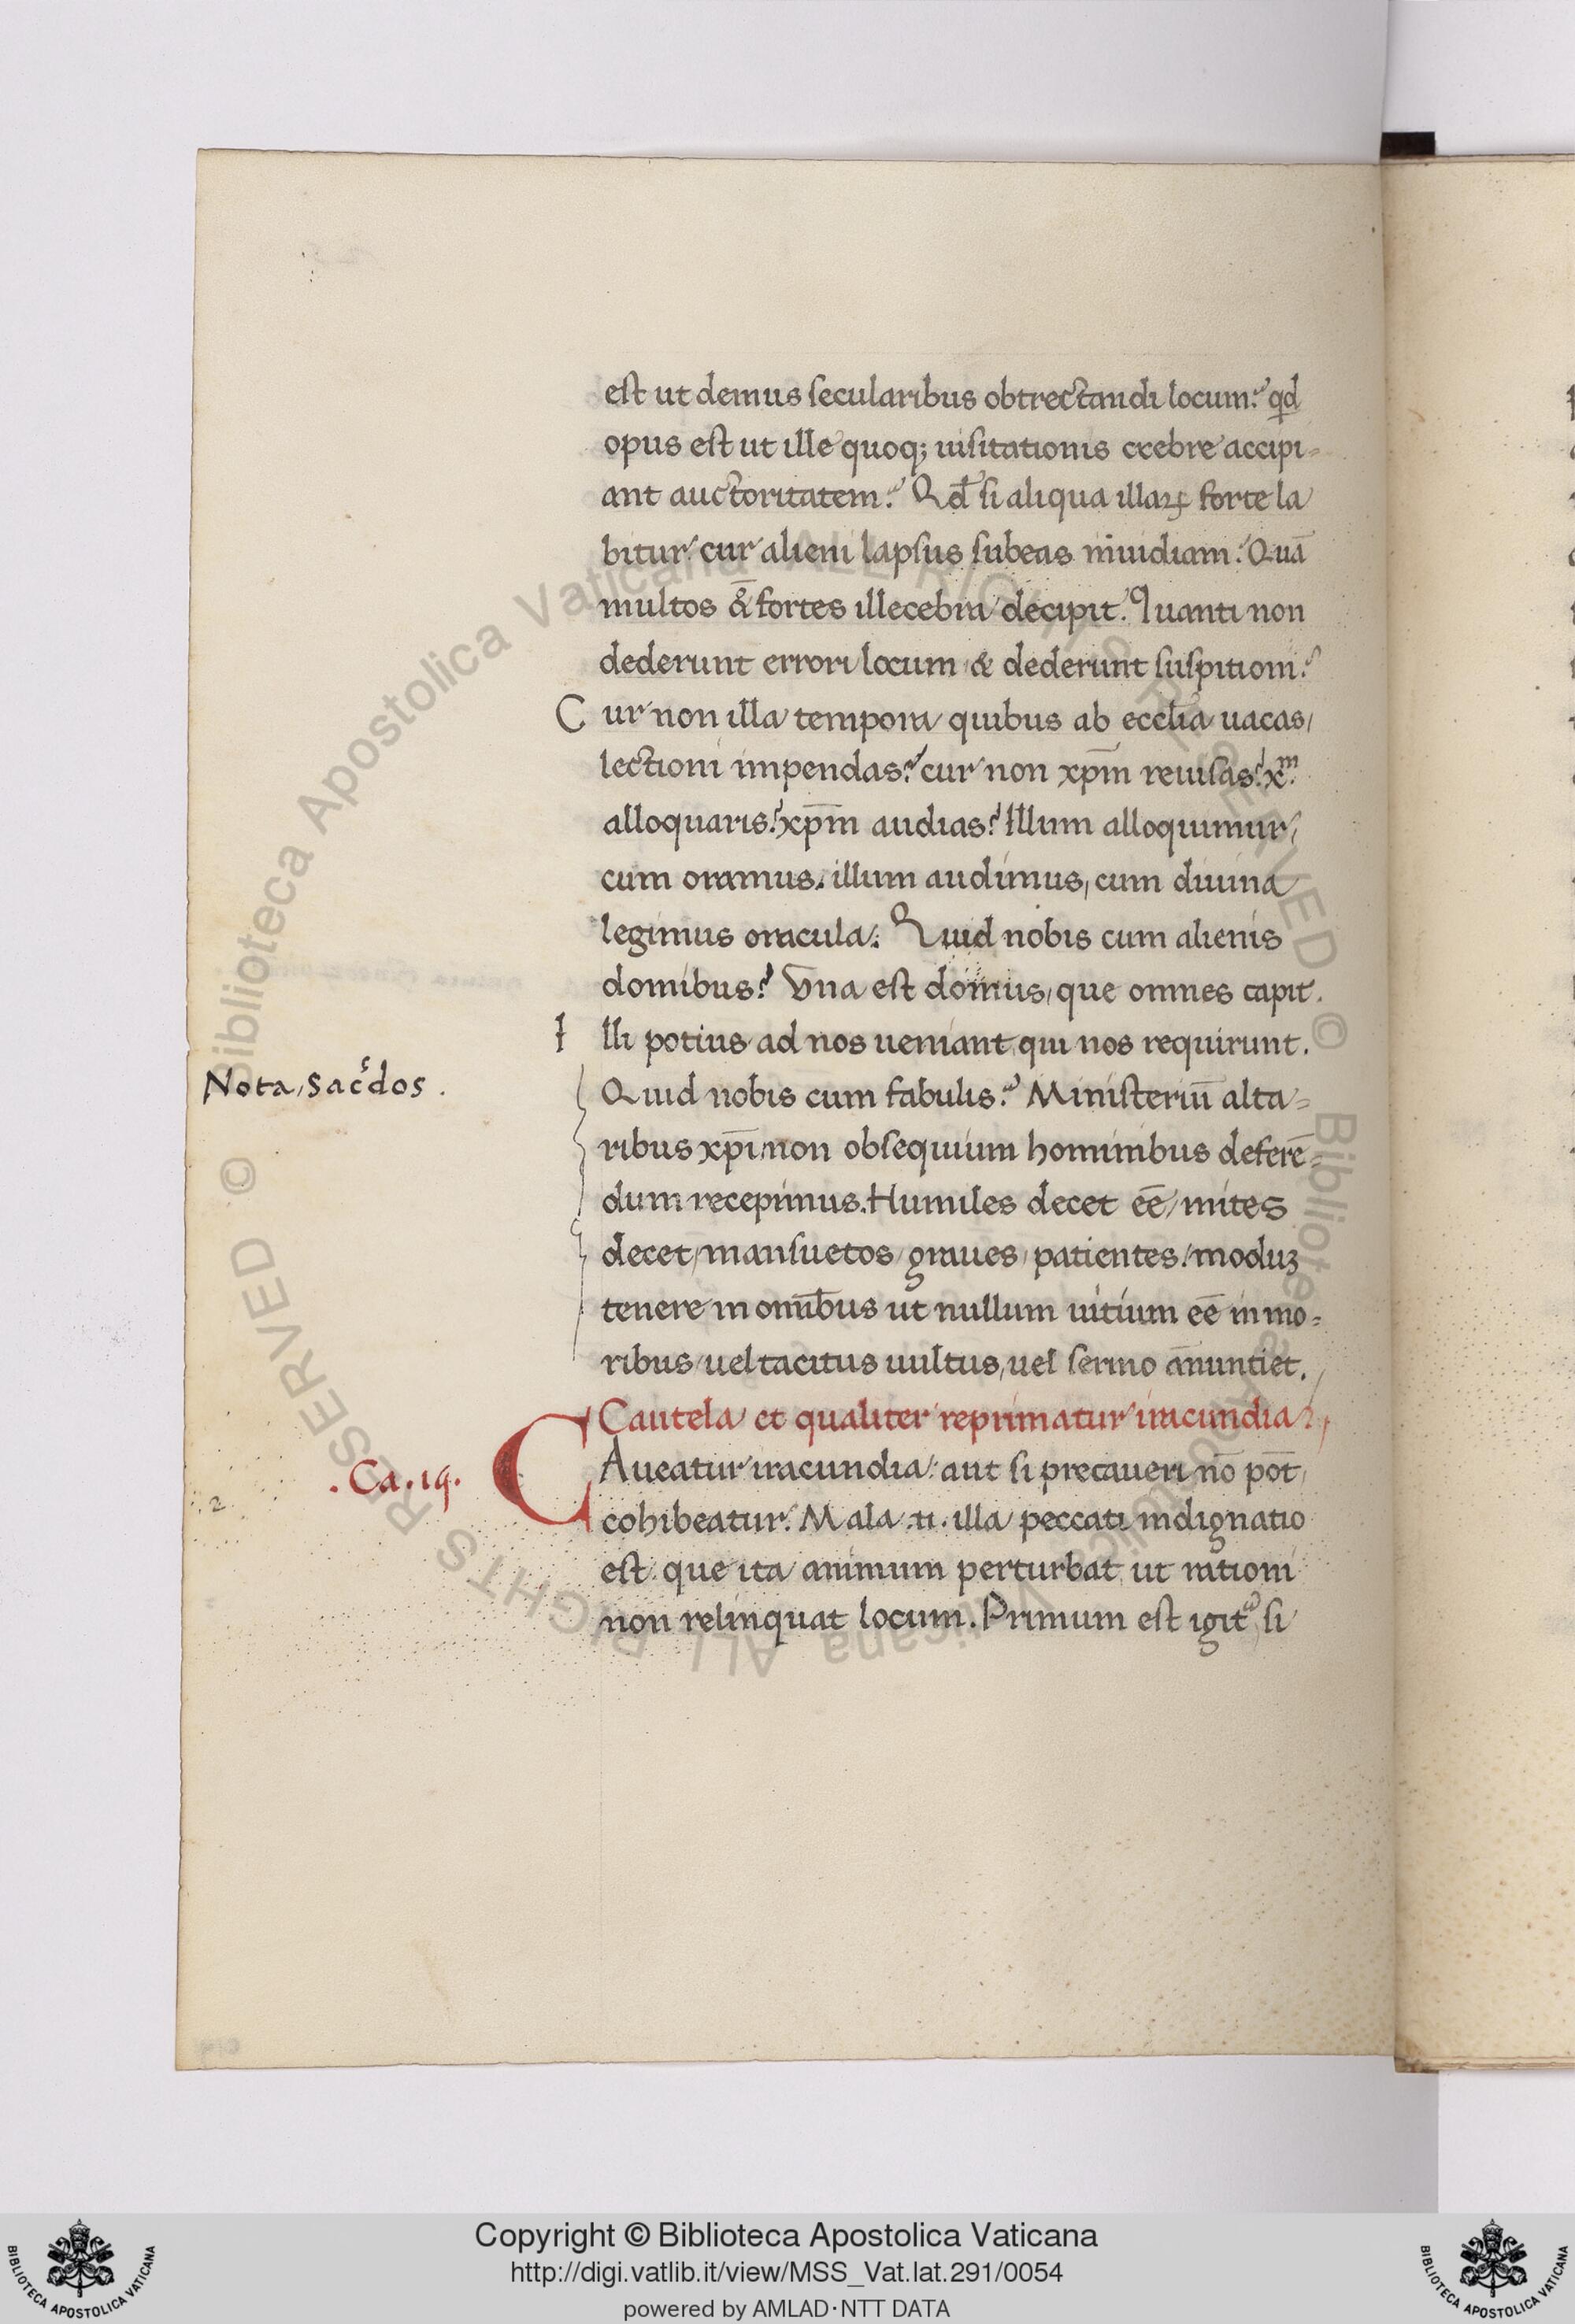 est ut demus secularibus obtrectandi locum? qd
opus est ut ille quoq; uisitationis crebre accipi=
ant auctoritatem? Qd si aliqua illaꝝ forte la
bitur cur alieni lapsus subeas inuidiam? Quā
multos & fortes illecebra decipit? Quanti non
dederunt errori locum & dederunt suspitioni?
Cur non illa tempora quibus ab ecclīa uacas,
lectioni impendas? cur non xp̄m reuisas? xm̄
alloquaris? xp̄m audias? Illum alloquimur,
cum oramus. illum audimus, cum diuina
legimus oracula. Quid nobis cum alienis
domibus? Vna est domus, que omnes capit.
Illi potius ad nos ueniant qui nos requirunt.
Nota, sac̄dos.
Quid nobis cum fabulis? Ministeriū alta=
ribus xp̄i, non obsequium hominibus deferē=
dum recepimus. Humiles decet eē, mites
decet, mansuetos, graues, patientes, moduꝫ
tenere in omībus ut nullum uitium eē in mo=
ribus, uel tacitus uultus, uel sermo ānuntiet.
Cautela et qualiter reprimatur iracundia.
.Ca.19.
CAueatur iracundia: aut si precaueri nō pōt,
cohibeatur. Mala .n. illa peccati indignatio
est. que ita animum perturbat, ut rationi
non relinquat locum. Primum est igit᷑, si
Copyright © Biblioteca Apostolica Vaticana
http://digi.vatlib.it/view/MSS_Vat.lat.291/0054
powered by AMLAD·NTT DATA
BIBLIOTECA APOSTOLICA VATICANA
BIBLIOTECA APOSTOLICA VATICANA
© Biblioteca Apostolica Vaticana ALL RIGHTS RESERVED © Biblioteca Apostolica Vaticana ALL RIGHTS RESERVED